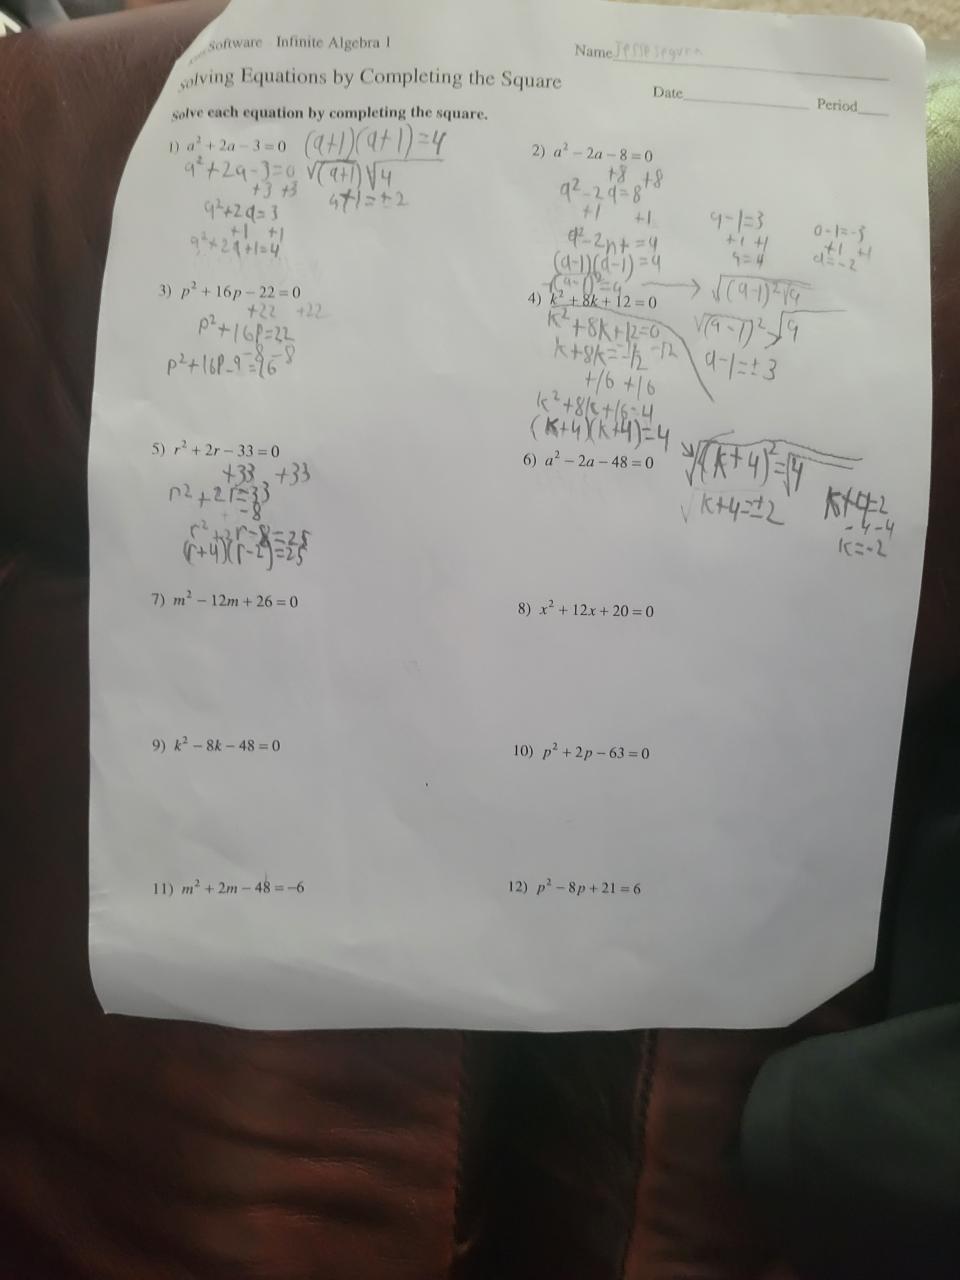 Software - Infinite Algebra 1
Name Jesse segura
Solving Equations by Completing the Square
Date
Period
Solve each equation by completing the square.
1) a² + 2a − 3 = 0
(a+1)(a+1)=4
a²+2a-3=0
√(a+1) √4
+3 +3
a+1=±2
a²+2a=3
+1 +1
a²+2a+1=4
2) a² − 2a − 8 = 0
+8 +8
a²-2a=8
+1 +1
(a-1)(a-1)=9
√(a-1)²√9
√(a-1)² √9
a-1=±3
a-1=3
+1 +1
a=4
a-1=-3
+1 +1
a=-2
3) p² + 16p − 22 = 0
+22 +22
p²+16p=22
-8 -8
4) k² + 8k + 12 = 0
k²+8k+12=0
k+8k=-12 -12
+16 +16
k²+8k+16=4
(k+4)(k+4)=4
√(k+4)²=√4
√k+4=±2
k+4=2
-4 -4
k=-2
5) r² + 2r − 33 = 0
+33 +33
r²+2r=33
-8
r²+2r-8=25
(r+4)(r-2)=25
6) a² − 2a − 48 = 0
7) m² − 12m + 26 = 0
8) x² + 12x + 20 = 0
9) k² − 8k − 48 = 0
10) p² + 2p − 63 = 0
11) m² + 2m − 48 = −6
12) p² − 8p + 21 = 6